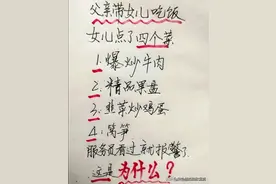 父亲带女儿吃饭
女儿点了四个菜
1. 爆炒牛肉
2. 精品果盘
3. 韭菜炒鸡蛋
4. 莴笋
服务员看过就报警了
这是为什么？